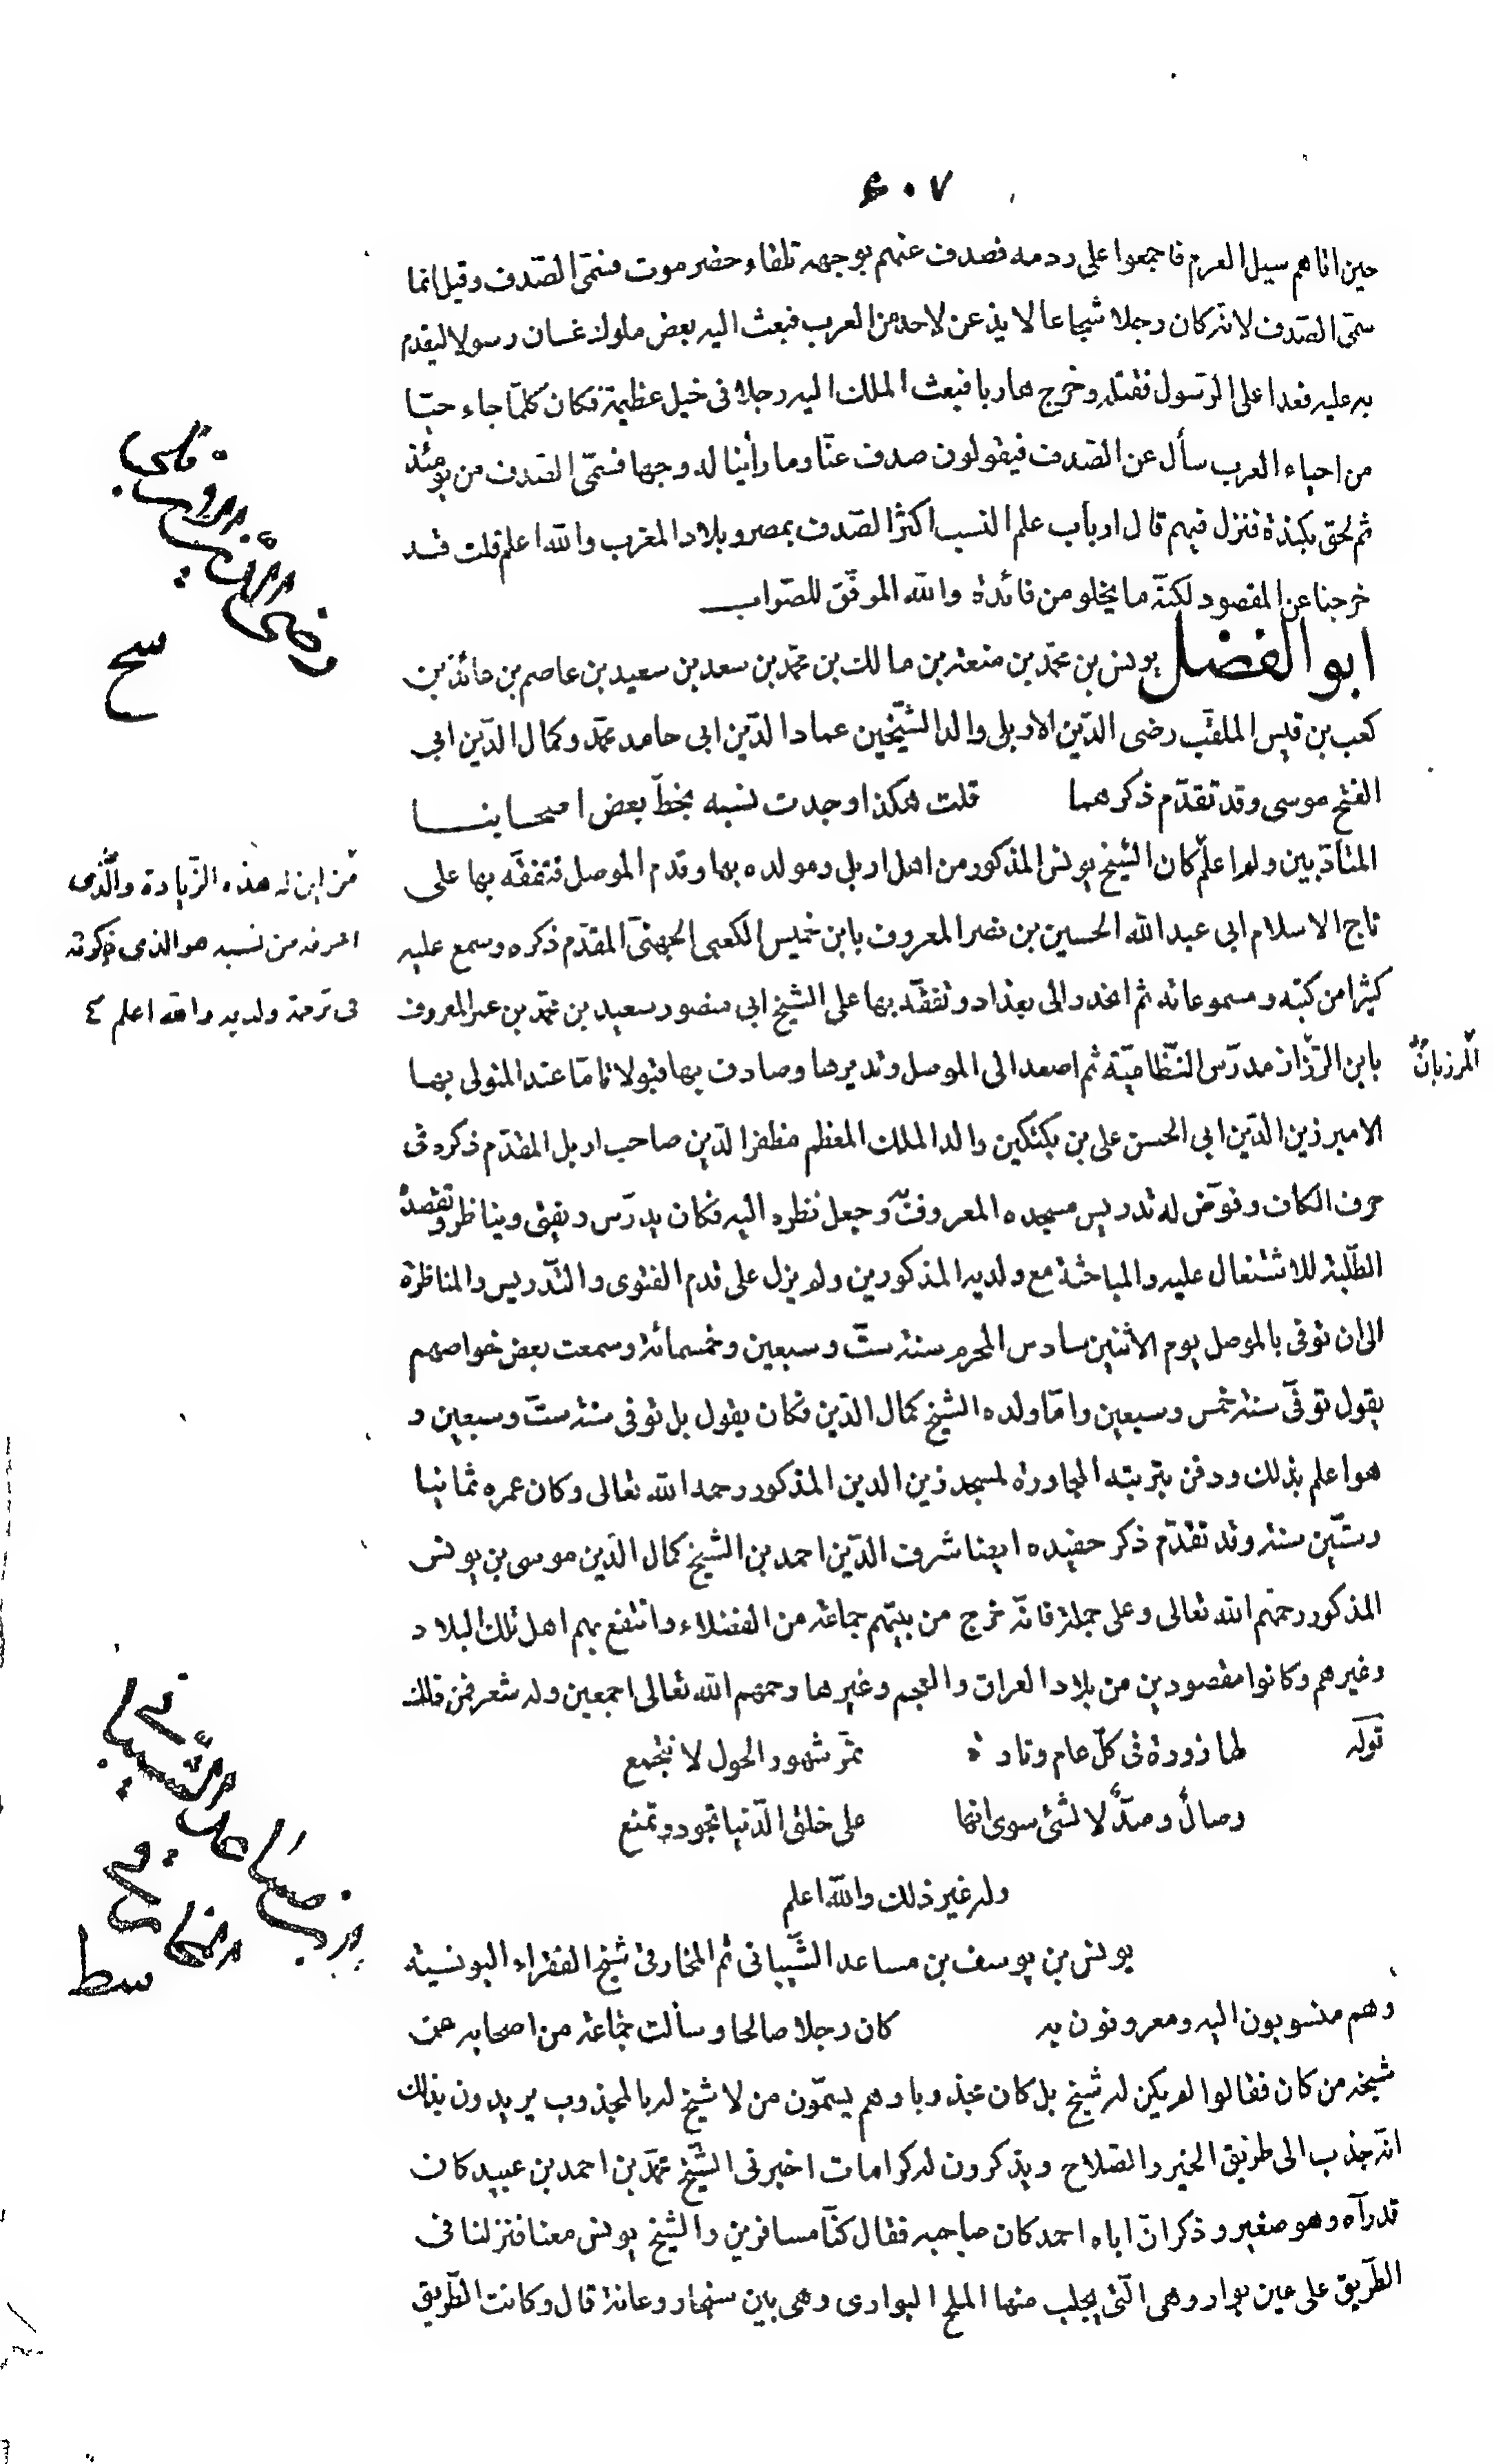 ۶۰۷
حين اتاهم سيل العرم فاجمعوا على ردمه فصدف عنهم بوجهه تلقاء حضرموت فسمّى الصّدف وقيل انما
سمّى الصّدف لانّه كان رجلا شجاعا لا يذعن لاحد من العرب فبعث اليه بعض ملوك غسان رسولا ليقدم
به عليه فعدا على الرّسول فقتله وخرج هاربا فبعث الملك اليه رجلا فى خيل عظيمة فكان كلّما جاء حيّا
من احياء العرب سأل عن الصّدف فيقولون صدف عنّا وما رأينا له وجها فسمّى الصّدف من يومئذ
ثم لحق بكندة فنزل فيهم قال ارباب علم النسب اكثر الصّدف بمصر وبلاد المغرب والله اعلم قلت قد
خرجنا عن المقصود لكنّه ما يخلو من فائدة والله الموفّق للصّواب
ابو الفضل يونس بن محمّد بن منعة بن مالك بن محمّد بن سعد بن سعيد بن عاصم بن عائذ بن
كعب بن قيس الملقّب رضى الدّين الاربلى والد الشّيخين عماد الدّين ابى حامد محمّد وكمال الدّين ابى
الفتح موسى وقد تقدّم ذكرهما قلت هكذا وجدت نسبه بخطّ بعض اصحابنا
المتأدّبين ولم اعلم كان الشّيخ يونس المذكور من اهل اربل ومولده بها وقدم الموصل فتفقّه بها على
تاج الاسلام ابى عبد الله الحسين بن نصر المعروف بابن خميس الكعبى الجهنىّ المقدّم ذكره وسمع عليه
كثيرا من كتبه ومسموعاته ثم انحدر الى بغداد وتفقّه بها على الشّيخ ابى منصور سعيد بن محمّد بن عمر المعروف
بابن الرّزّاز مدرّس النّظاميّة ثم اصعد الى الموصل وتديرها وصادف بها قبولا تامّا عند المتولى بها
الامير زين الدّين ابى الحسن على بن بكتكين والد الملك المعظم مظفر الدّين صاحب اربل المقدّم ذكره فى
حرف الكاف وفوّض له تدريس مسجده المعروف وجعل نظره اليه فكان يدرّس ويفتى ويناظر وتقصده
الطّلبة للاشتغال عليه والمباحثة مع ولديه المذكورين ولم يزل على قدم الفتوى والتّدريس والمناظرة
الى ان توفى بالموصل يوم الاثنين سادس المحرم سنة ستّ وسبعين وخمسمائة وسمعت بعض خواصهم
يقول توفّى سنة خمس وسبعين وامّا ولده الشيخ كمال الدّين فكان يقول بل توفى سنة ستّ وسبعين و
هو اعلم بذلك ودفن بتربته المجاورة لمسجد زين الدين المذكور رحمه الله تعالى وكان عمره ثمانيا
وستّين سنة وقد تقدّم ذكر حفيده ايضا شرف الدّين احمد بن الشّيخ كمال الدّين موسى بن يونس
المذكور رحمهم الله تعالى وعلى جملة فانّه خرج من بيتهم جماعة من الفضلاء وانتفع بهم اهل تلك البلاد
وغيرهم وكانوا مقصودين من بلاد العراق والعجم وغيرها رحمهم الله تعالى اجمعين وله شعر فمن ذلك
قوله لها زورة فى كلّ عام وتارة تمرّ شهور الحول لا نتجمع
وصال وصدّ لا لشئ سوى انها على خلق الدّنيا تجود وتمنع
وله غير ذلك والله اعلم
يونس بن يوسف بن مساعد الشّيبانى ثم المخارقى شيخ الفقراء اليونسيّة
وهم منسوبون اليه ومعروفون به كان رجلا صالحا وسألت جماعة من اصحابه عن
شيخه من كان فقالوا لم يكن له شيخ بل كان مجذوبا وهم يسمّون من لا شيخ له بالمجذوب يريدون بذلك
انّه جذب الى طريق الخير والصّلاح ويذكرون له كرامات اخبرنى الشّيخ محمّد بن احمد بن عبيد كان
قد رآه وهو صغير وذكر انّ اباه احمد كان صاحبه فقال كنّا مسافرين والشّيخ يونس معنا فنزلنا فى
الطّريق على عين بوار وهى الّتى يجلب منها الملح البوارى وهى بين سنجار وعانة قال وكانت الطّريق
رضى الدّين الاربلى
سح
من اين له هذه الزّيادة والّذى
اعرفه من نسبه هو الذى ذكرته
فى ترجمة ولديه والله اعلم
المرزبان
يونس بن مساعد الشّيبانى
المخارقى
سط